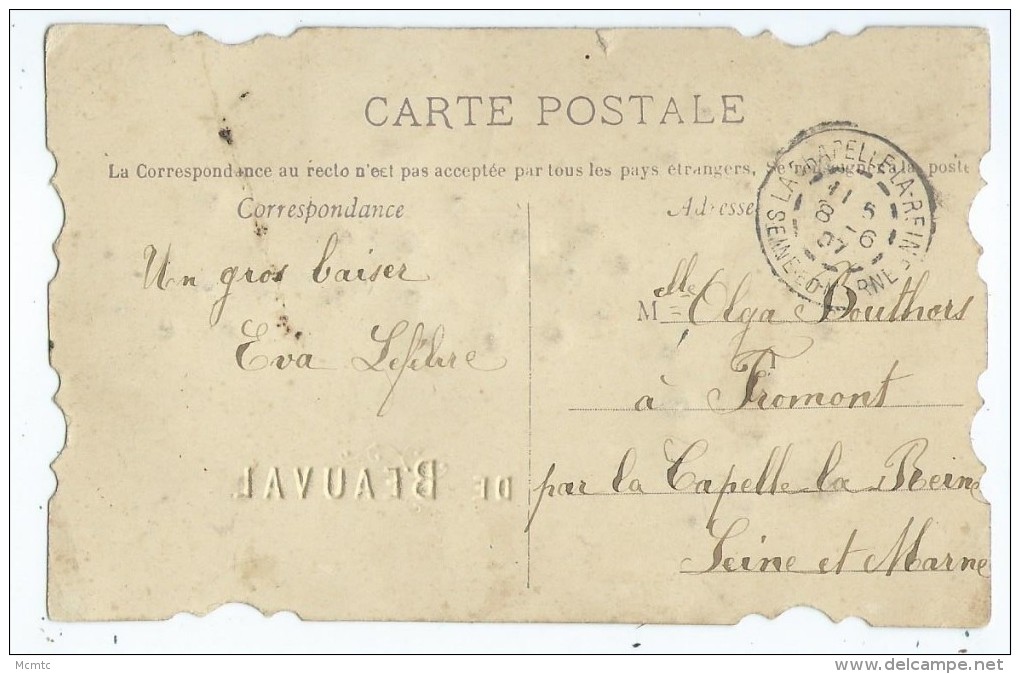 CARTE POSTALE
La Correspondance au recto n'est pas acceptée par tous les pays étrangers, Se renseigner à la poste
Correspondance
Adresse
LA CHAPELLE-LA-REINE
11 5
8 - 6
07
SEINE-ET-MARNE
Un gros baiser
Eva Lefebre
Mlle Olga Bouthors
à Fromont
par la Capelle la Reine
Seine et Marne
DE BEAUVAL
Mcmtc
www.delcampe.net